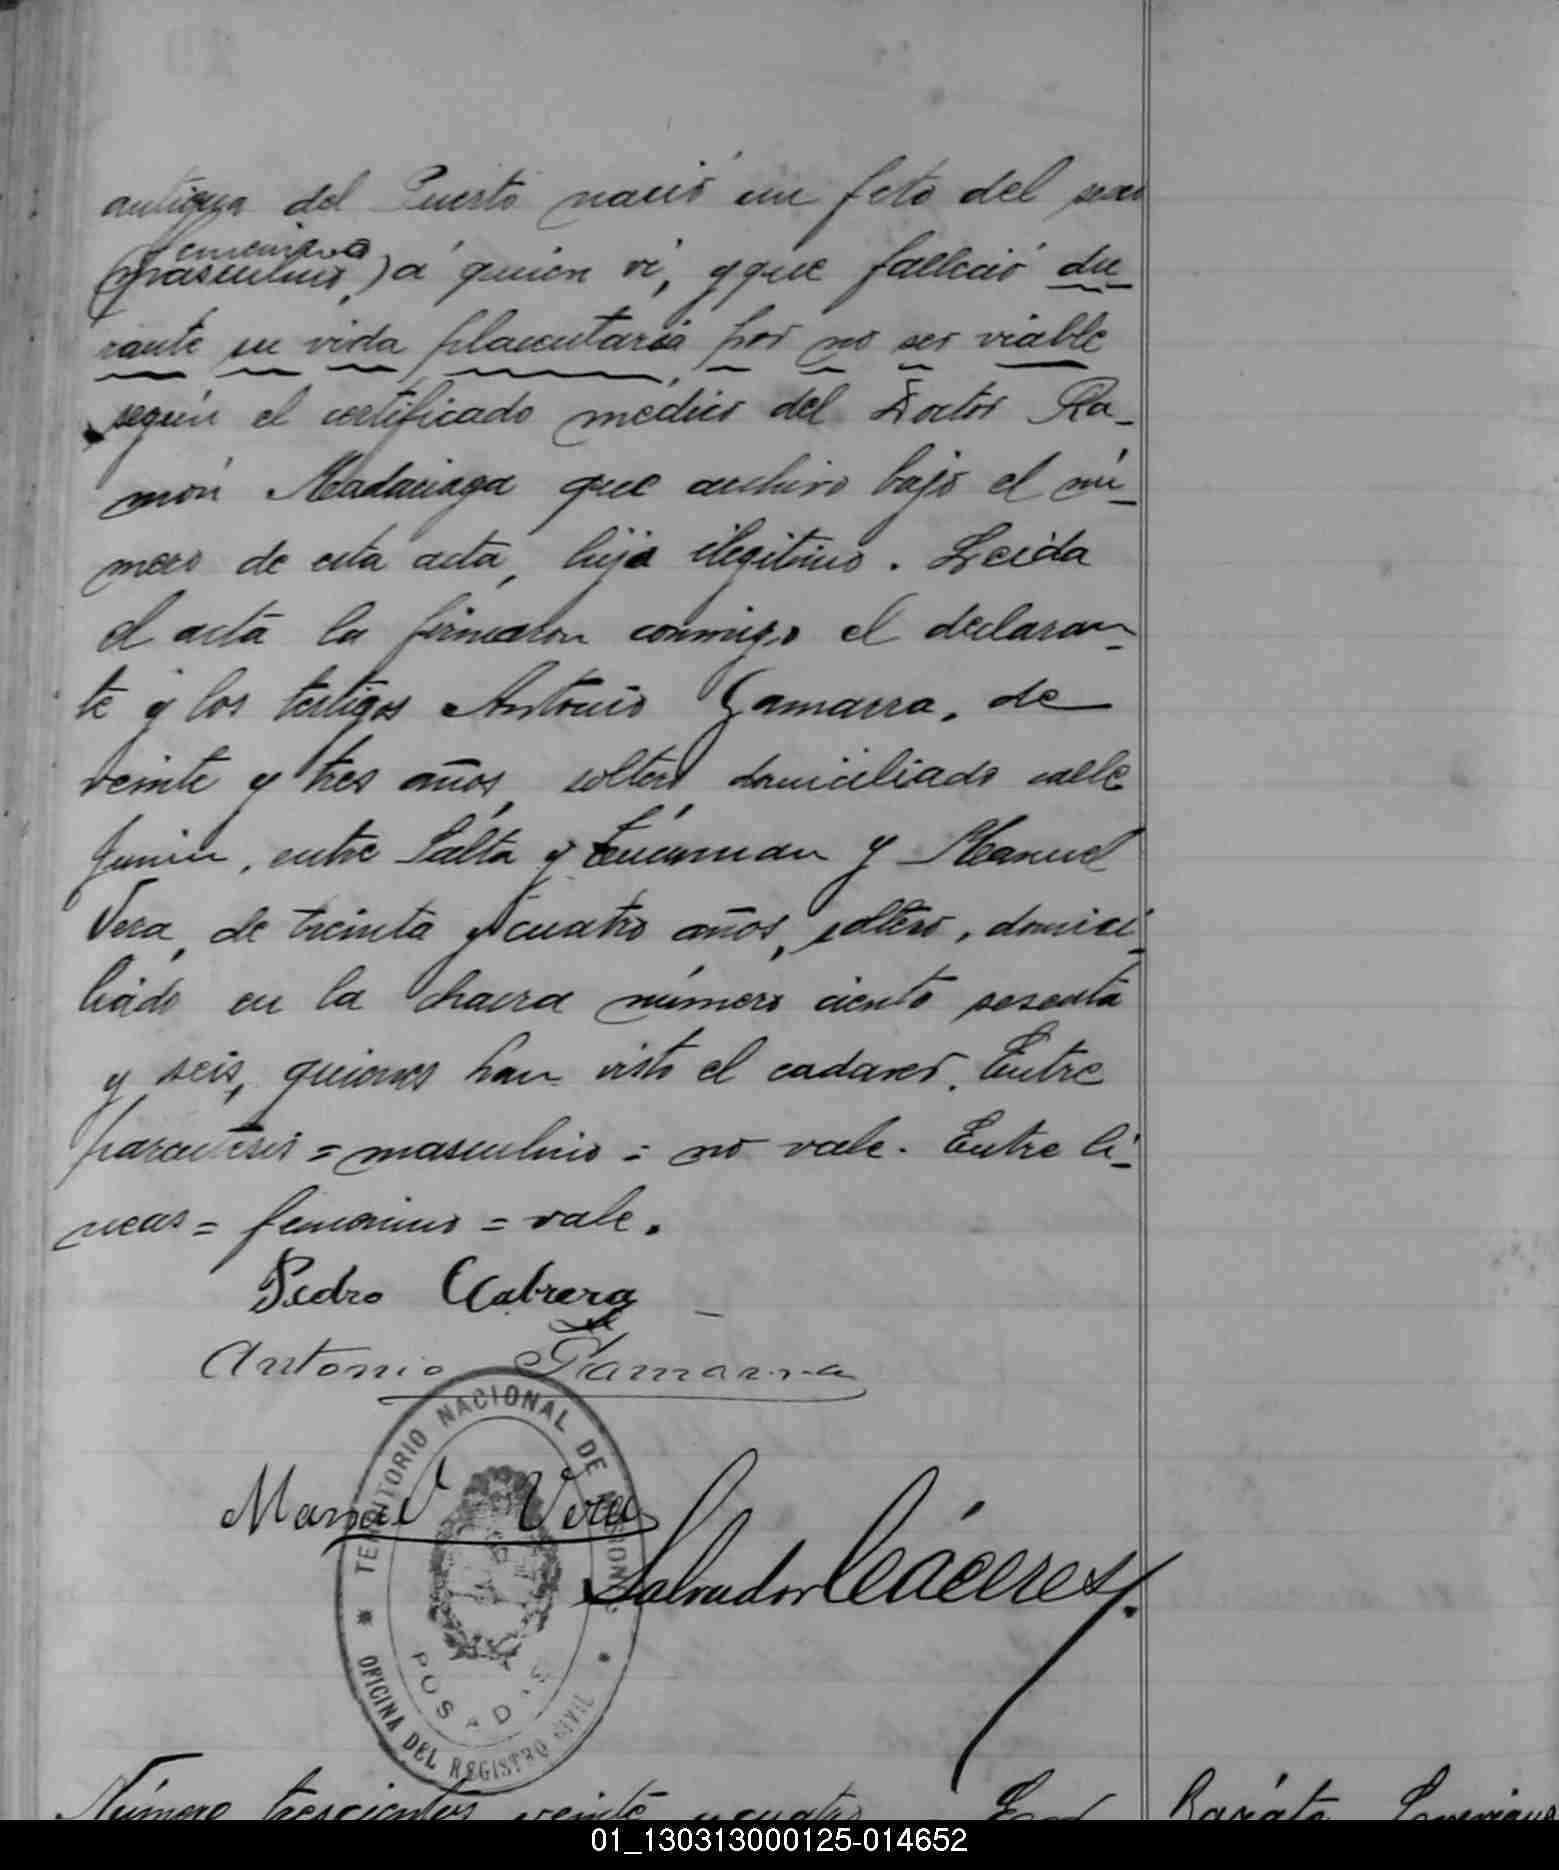 antigua del Puerto nació un feto del sexo
femenino
(masculino,) á quien ví, y que falleció du
rante su vida placentaria por no ser viable
según el certificado médico del Doctor Ra-
món Madariaga que archivo bajo el nú-
mero de esta acta, hija ilegitimo. Leida
el acta la firmaron conmigo el declaran-
te y los testigos Antonio Gamarra, de
veinte y tres años, soltero, domiciliado calle
Junin, entre Salta y Tucuman y Manuel
Vera, de treinta y cuatro años, soltero, domici-
liado en la chacra número ciento sesenta
y seis, quienes han visto el cadaver. Entre
parentesis = masculino = no vale. Entre lí-
neas = femenino = vale.
Pedro Cabrera
Antonio Gamarra
Manuel Vera
Salvador Cáceres
TERRITORIO NACIONAL DE MISIONES
POSADAS
OFICINA DEL REGISTRO CIVIL
Número trescientos veinte y cuatro. En
01_130313000125-014652